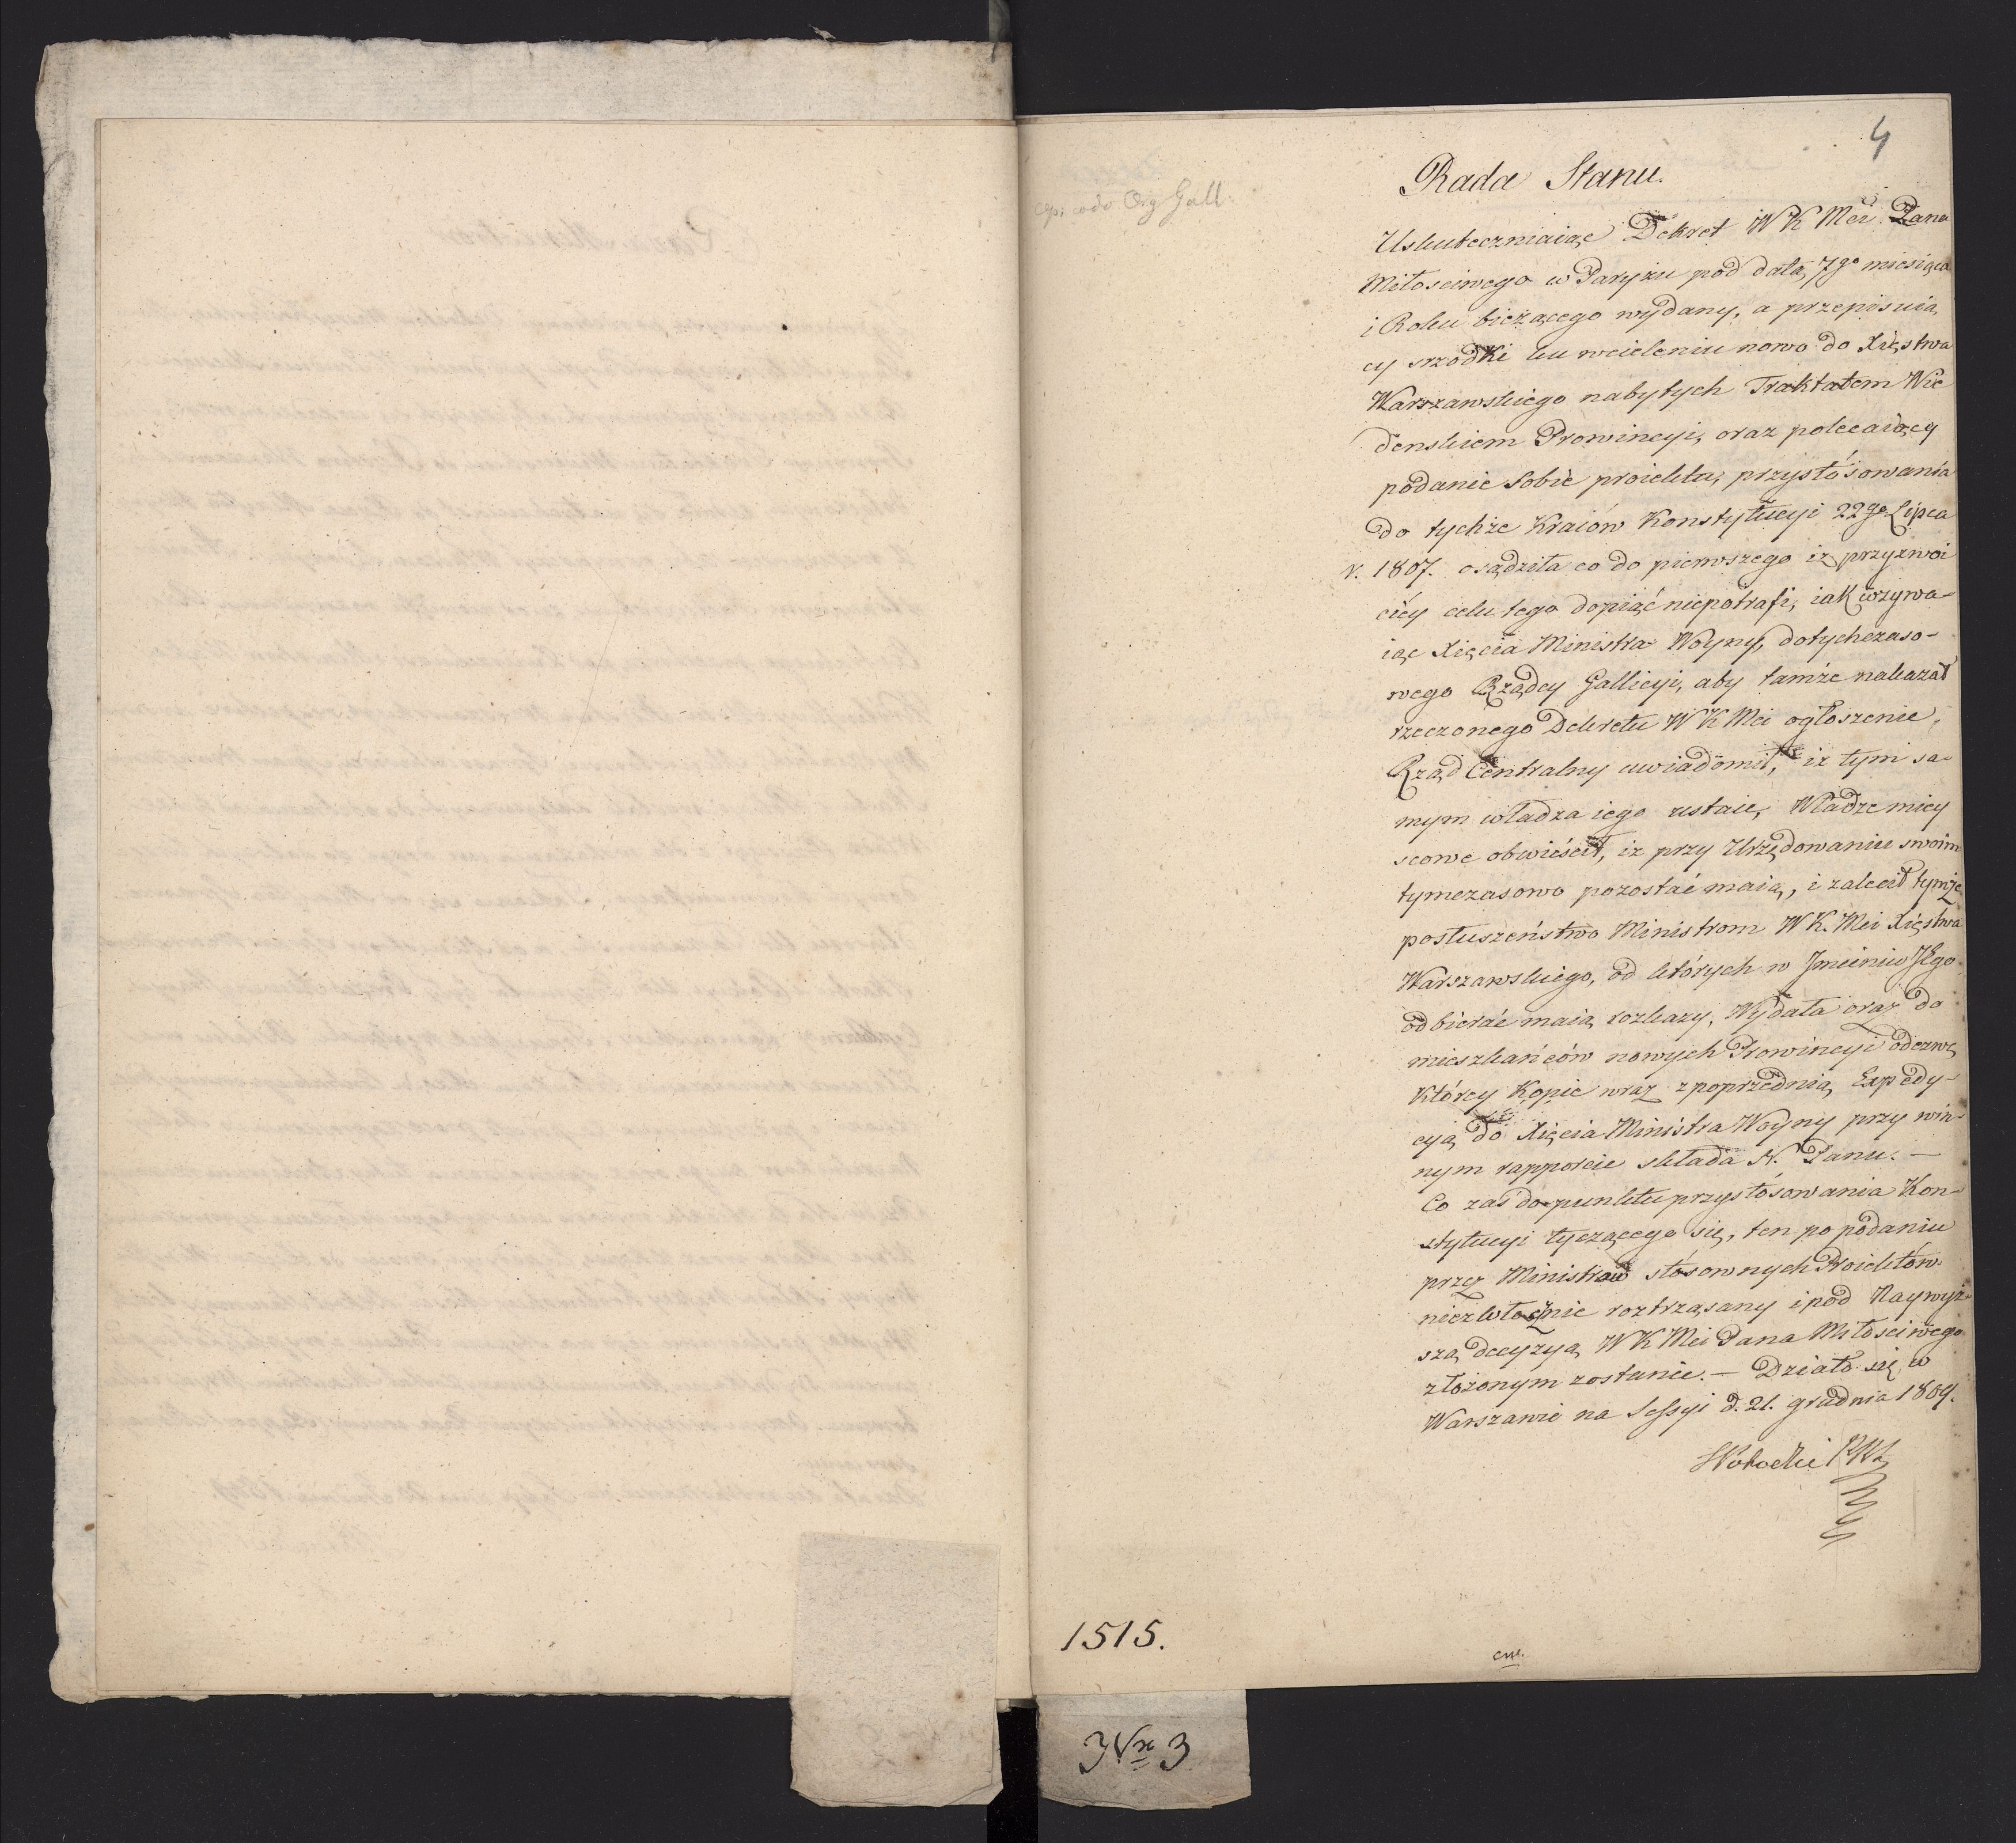 4
Rada Stanu.
Org Gall.
Uskuteczniaiąc Dekret W K Mci Pana
Miłosciwego w Paryżu pod datą 7go miesiąca
i Roku bieżącego wydany, a przepisuią
cy srzodki ku wcieleniu nowo do Xięstwa
Warszawskiego nabytych Traktatem Wie
denskiem Prowincyi, oraz polecaiący
podanie sobie proiektu, przystósowania
do tychże Kraiów Konstytucyi 22go Lipca
r. 1807. osądziła co do pierwszego iż przyzwoi
ciéy celu tego dopiąć niepotrafi, iak wzywa-
iąc Xięcia Ministra Woyny, dotychczaso-
wego Rządcy Gallicyi, aby tamże nakazał
rzeczonego Dekretu W K Mci ogłoszenie,
Rząd Centralny uwiadomił, iż tym sa-
mym władza iego ustaie, Władze miey
scowe obwieścił, iż przy Urzędowaniu swoim
tymczasowo pozostać maią, i zalecił tymże
posłuszeństwo Ministrom W K. Mci Xięstwa
Warszawskiego, od których w Jmieniu JEgo
odbierać maią rozkazy, Wydała oraz do
mieszkańców nowych Prowincyi odezwę
którey Kopie wraz z poprzednią Expedy-
cyą do Xięcia Ministra Woyny przy win-
nym rapporcie składa N. Panu. —
Co zaś do punktu przystósowania Kon-
stytucyi tyczącego się, ten po podaniu
przez Ministrów stósownych Proiektów
niezwłocznie roztrząsany i pod Naywyż-
szą decyzyą W K Mci Pana Miłosciwego
złożonym zostanie. — Działo się w
Warszawie na Sessyi d. 21. grudnia 1809.
1515.
Nro 3